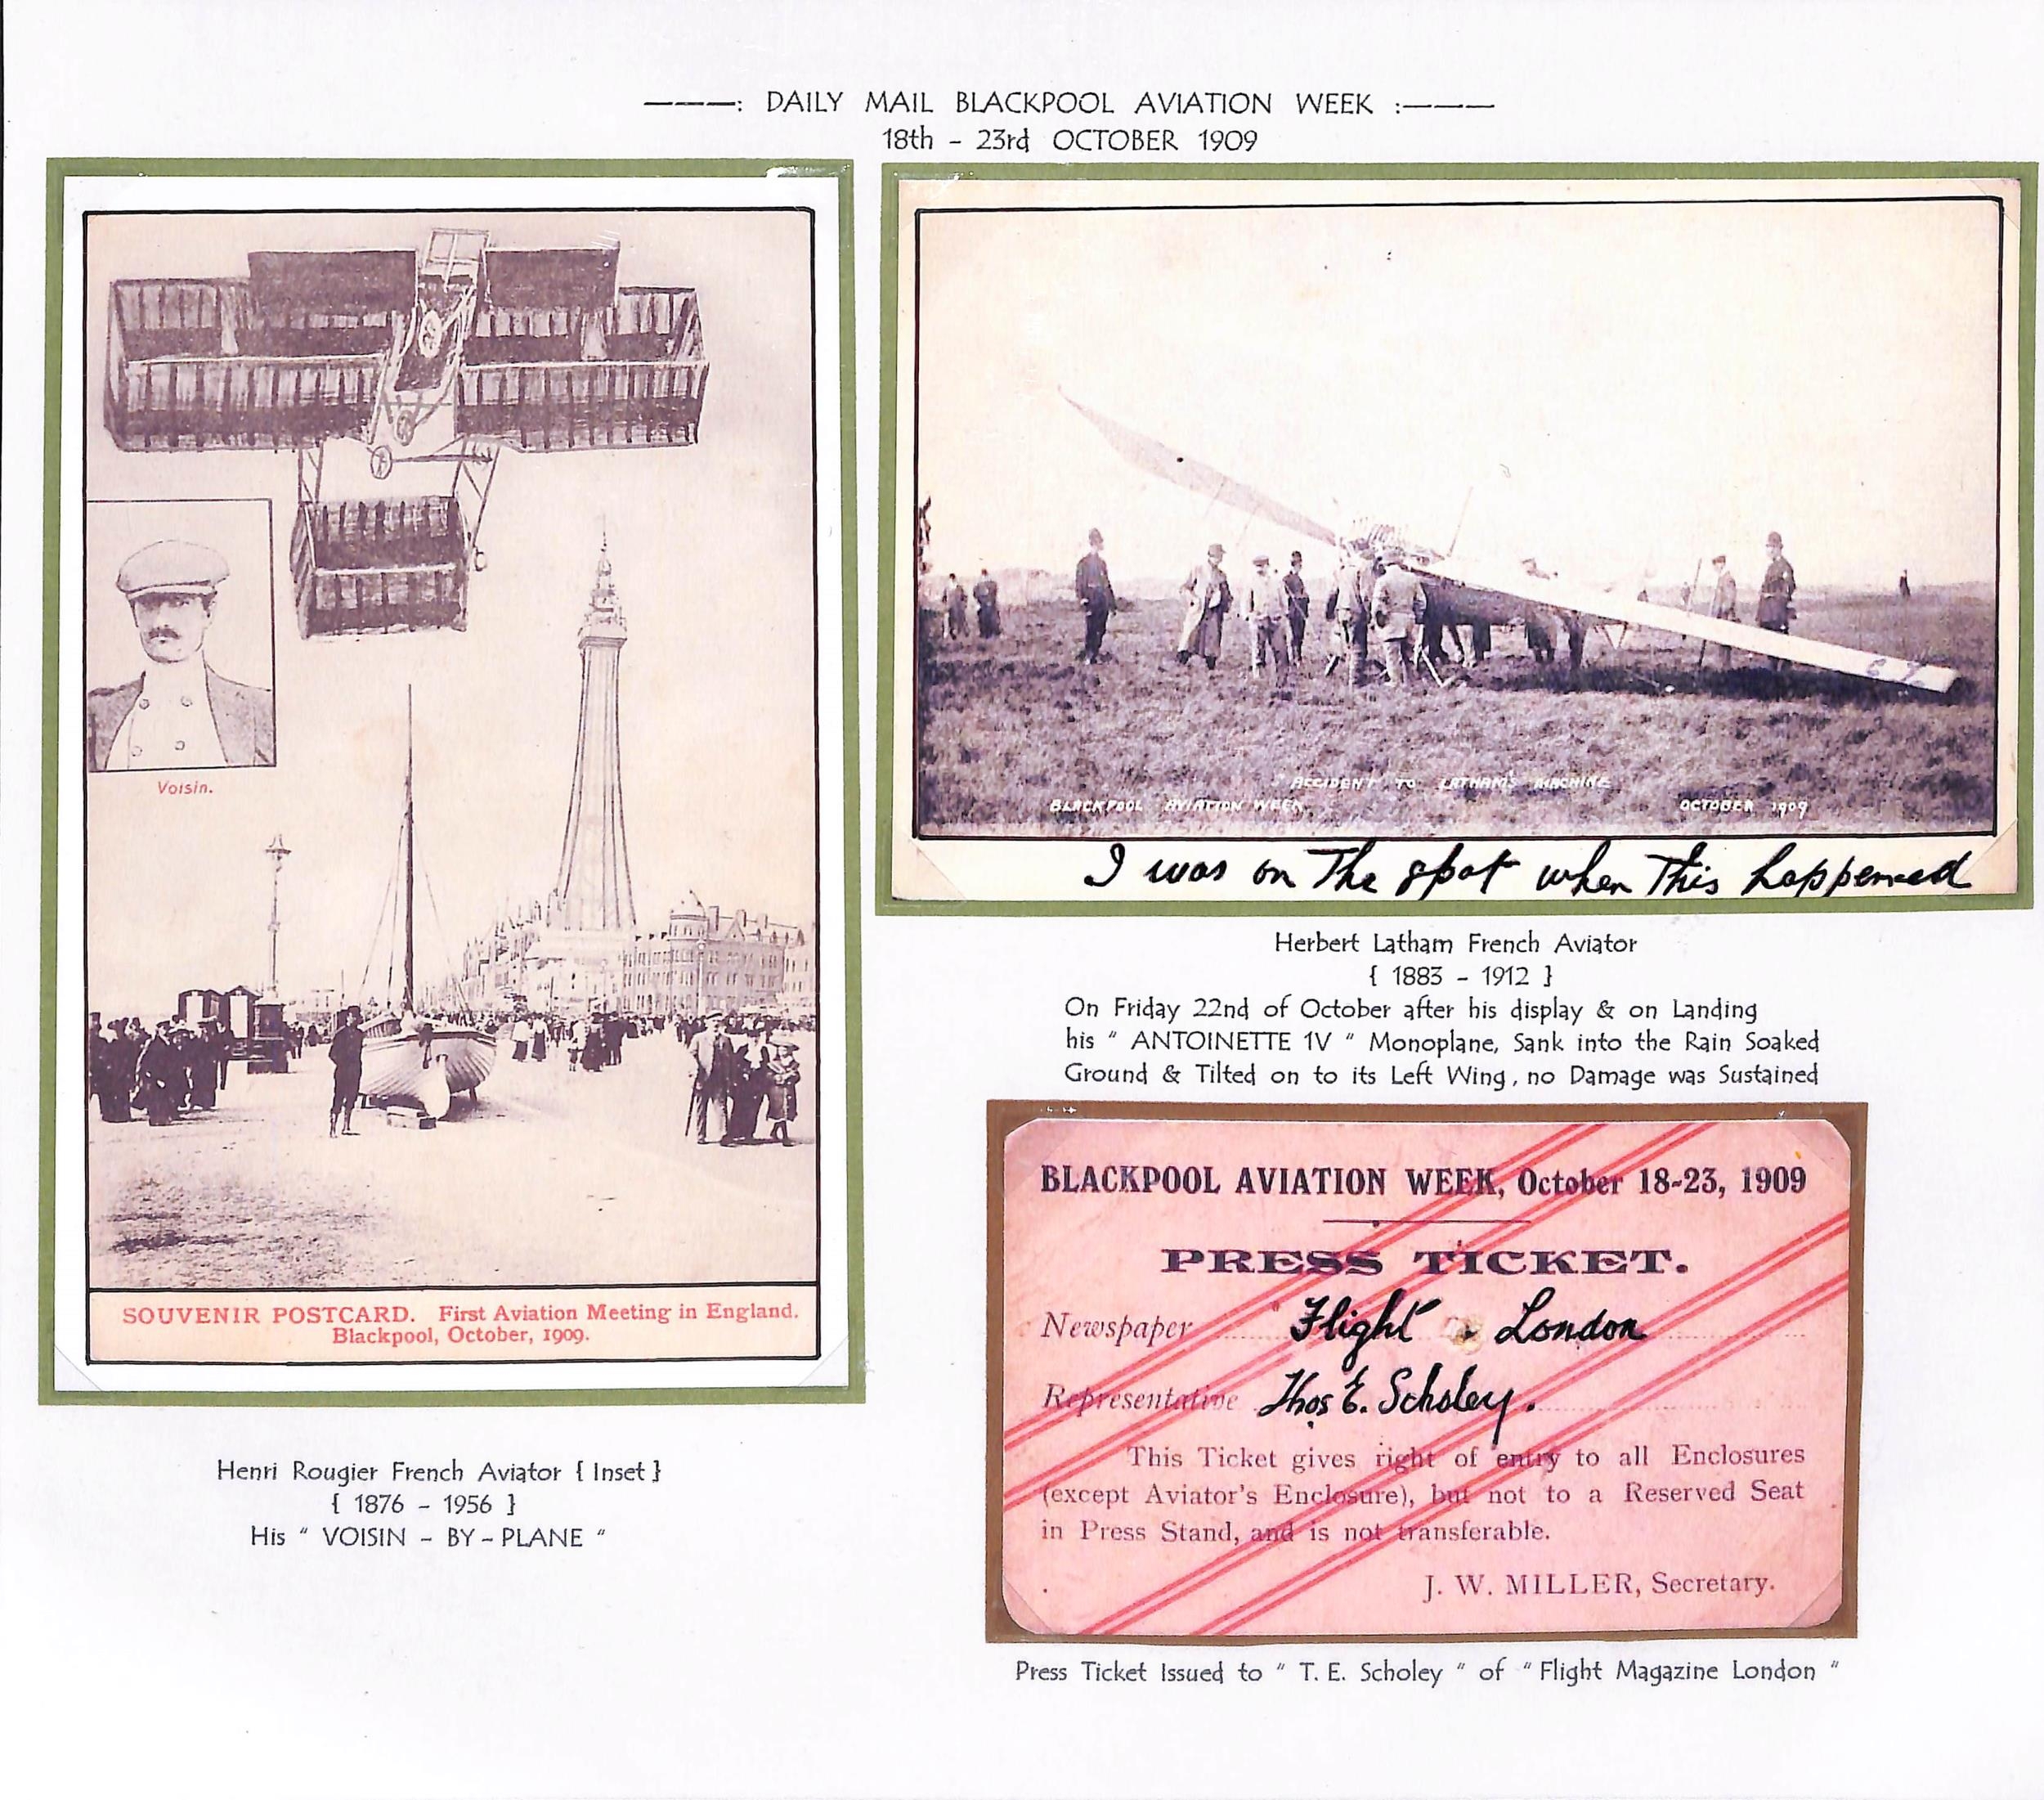 ———: DAILY MAIL BLACKPOOL AVIATION WEEK :———
18th - 23rd OCTOBER 1909
Voisin.
SOUVENIR POSTCARD. First Aviation Meeting in England.
Blackpool, October, 1909.
Henri Rougier French Aviator { Inset }
{ 1876 - 1956 }
His " VOISIN - BY - PLANE "
"ACCIDENT" TO LATHAM'S MACHINE
BLACKPOOL AVIATION WEEK. OCTOBER 1909
I was on The spot when This happened
Herbert Latham French Aviator
{ 1883 - 1912 }
On Friday 22nd of October after his display & on Landing
his " ANTOINETTE 1V " Monoplane, Sank into the Rain Soaked
Ground & Tilted on to its Left Wing, no Damage was Sustained
BLACKPOOL AVIATION WEEK, October 18-23, 1909
PRESS TICKET.
Newspaper Flight London
Representative Thos E. Scholey.
This Ticket gives right of entry to all Enclosures
(except Aviator's Enclosure), but not to a Reserved Seat
in Press Stand, and is not transferable.
J. W. MILLER, Secretary.
Press Ticket Issued to " T. E. Scholey " of " Flight Magazine London "